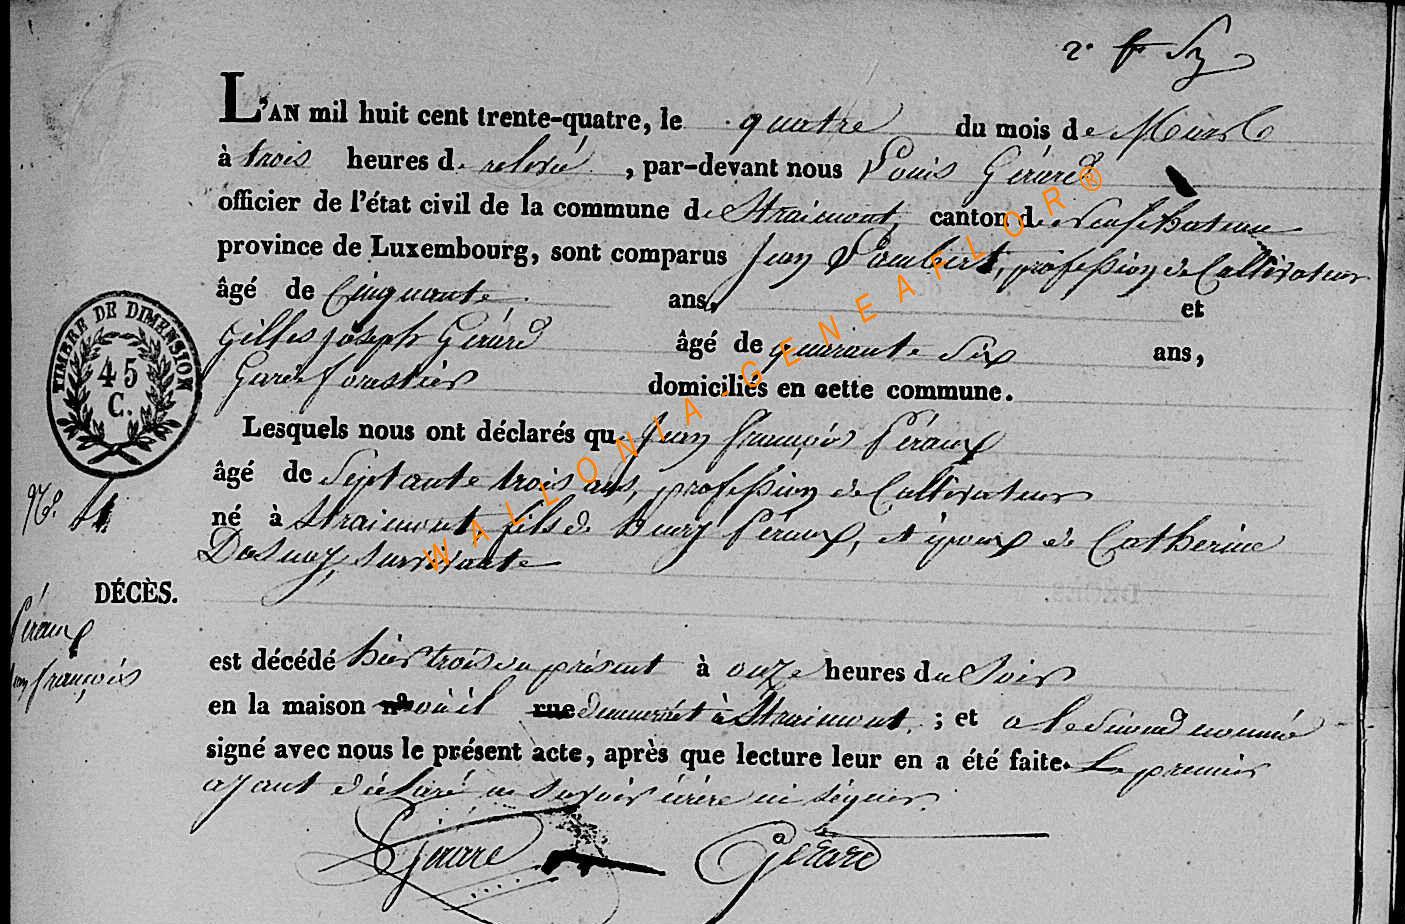 L'AN mil huit cent trente-quatre, le quatre du mois de Mars
à trois heures de relevé, par-devant nous Louis Gérard
officier de l'état civil de la commune de Straimont, canton de Neufchateau
province de Luxembourg, sont comparus Jean Lambert, profession de Cultivateur
âgé de Cinquante ans, et
Gilles joseph Gérard âgé de quarante six ans,
Garde forestier domiciliés en cette commune.
Lesquels nous ont déclarés que Jean françois Péraux
âgé de Septante trois ans, profession de Cultivateur
né à Straimont, fils de Henry Péraux, et époux de Catherine
Dasnoy, survivante
TIMBRE DE DIMENSION
45
C.
N°. 4
DÉCÈS.
Péraux
Jean françois
est décédé hier trois du présent à onze heures du Soir
en la maison n° où il rue demeurait à Straimont, ; et a le Second nommé
signé avec nous le présent acte, après que lecture leur en a été faite. Le premier
ayant déclaré ne Savoir écrire ni Signer.
Gérard Gérard
WALLONIA-GENEAFLOR®